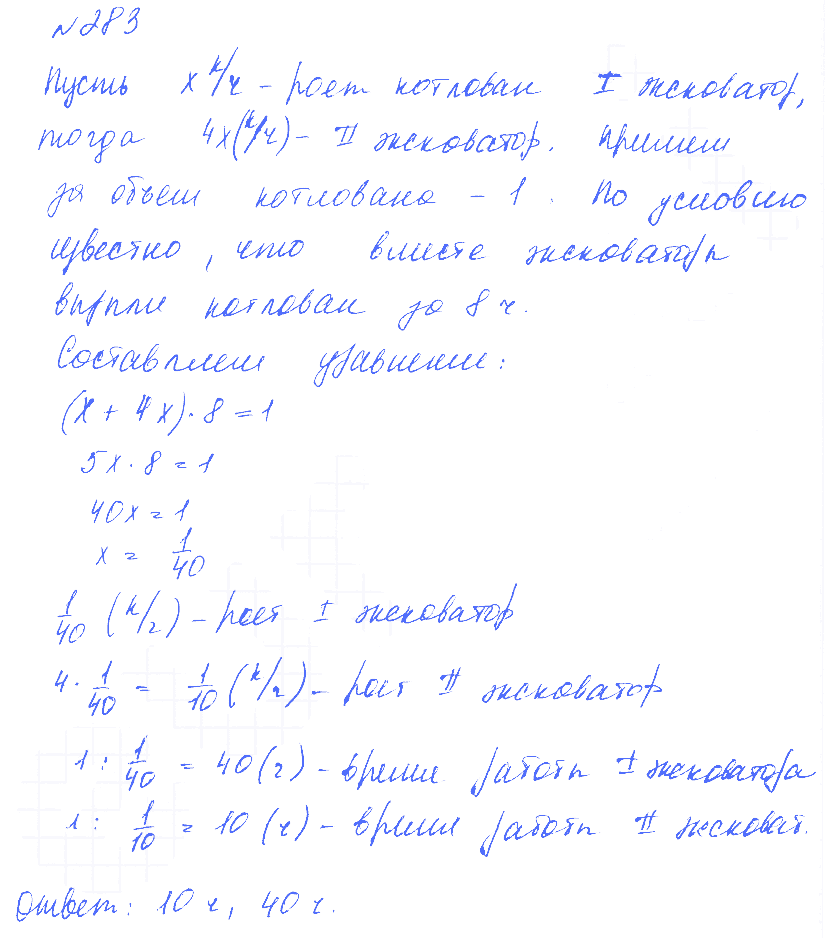 №283
Пусть x к/ч – роет котлован I экскаватор,
тогда 4x(к/ч) – II экскаватор. Примем
за объем котлована – 1. По условию
известно, что вместе экскаваторы
вырыли котлован за 8 ч.
Составляем уравнение:
(x + 4x)·8=1
5x·8=1
40x=1
x = 1/40
1/40 (к/ч) – роет I экскаватор
4·1/40 = 1/10 (к/ч) – роет II экскаватор
1 : 1/40 = 40(ч) – время работы I экскаватора
1 : 1/10 = 10 (ч) – время работы II экскават.
Ответ: 10 ч, 40 ч.